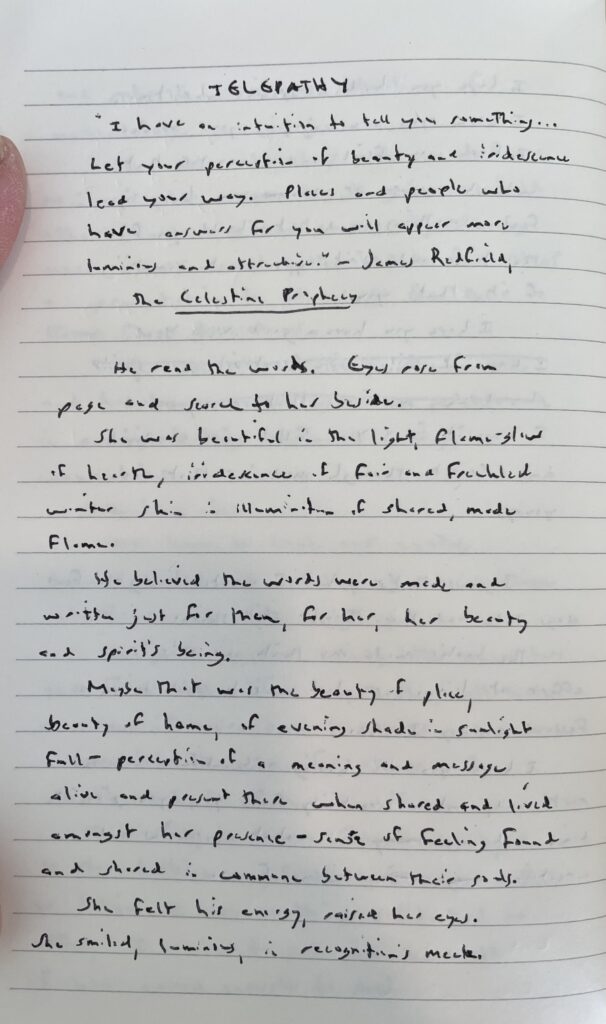 TELEPATHY
"I have an intuition to tell you something...
Let your perception of beauty and iridescence
lead your way. Places and people who
have answers for you will appear more
luminous and attractive." - James Redfield,
The Celestine Prophecy
He read the words. Eyes rose from
page and search to her beside.
She was beautiful in the light, flame-glow
of hearth, iridescence of fair and freckled
winter skin in illumination of shared, made
flame.
He believed the words were made and
written just for them, for her, her beauty
and spirit's being.
Maybe that was the beauty of place,
beauty of home, of evening shade in sunlight
fall - perception of a meaning and message
alive and present there when shared and lived
amongst her presence - sense of feeling found
and shared in commune between their souls.
She felt his energy, raised her eyes.
She smiled, luminous, in recognition's